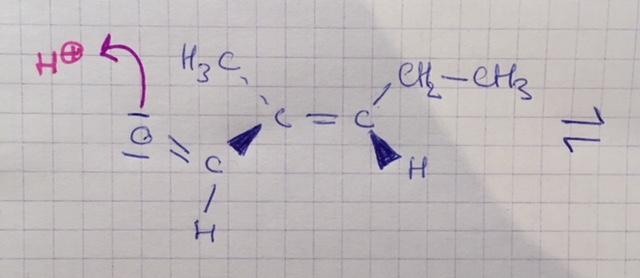 H⊕ H₃C CH₂—CH₃
O = C C = C H
H